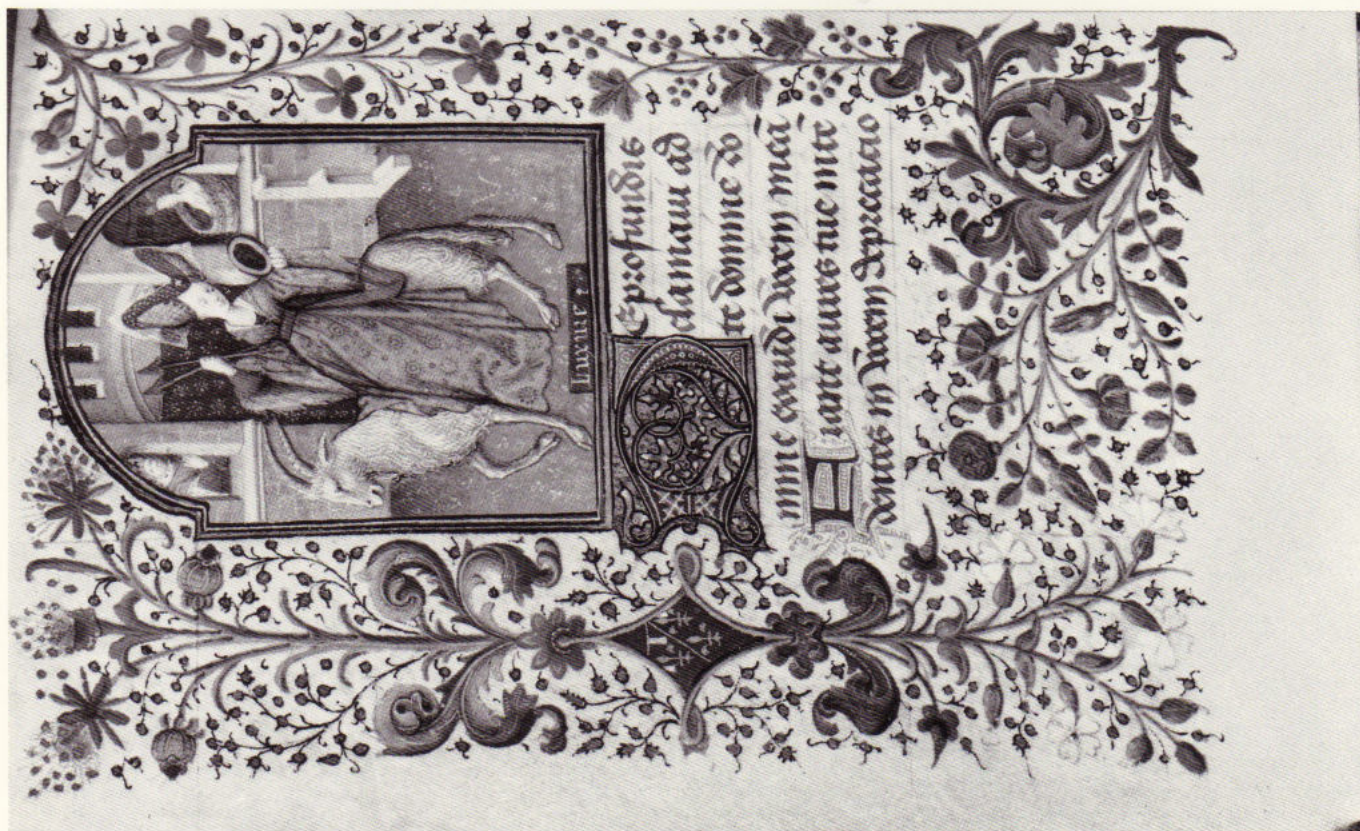 luxure
De profundis
clamaui ad
te domine do
mine exaudi uocem meā
Fiant aures tue inte
dentes in uocem deprecatio